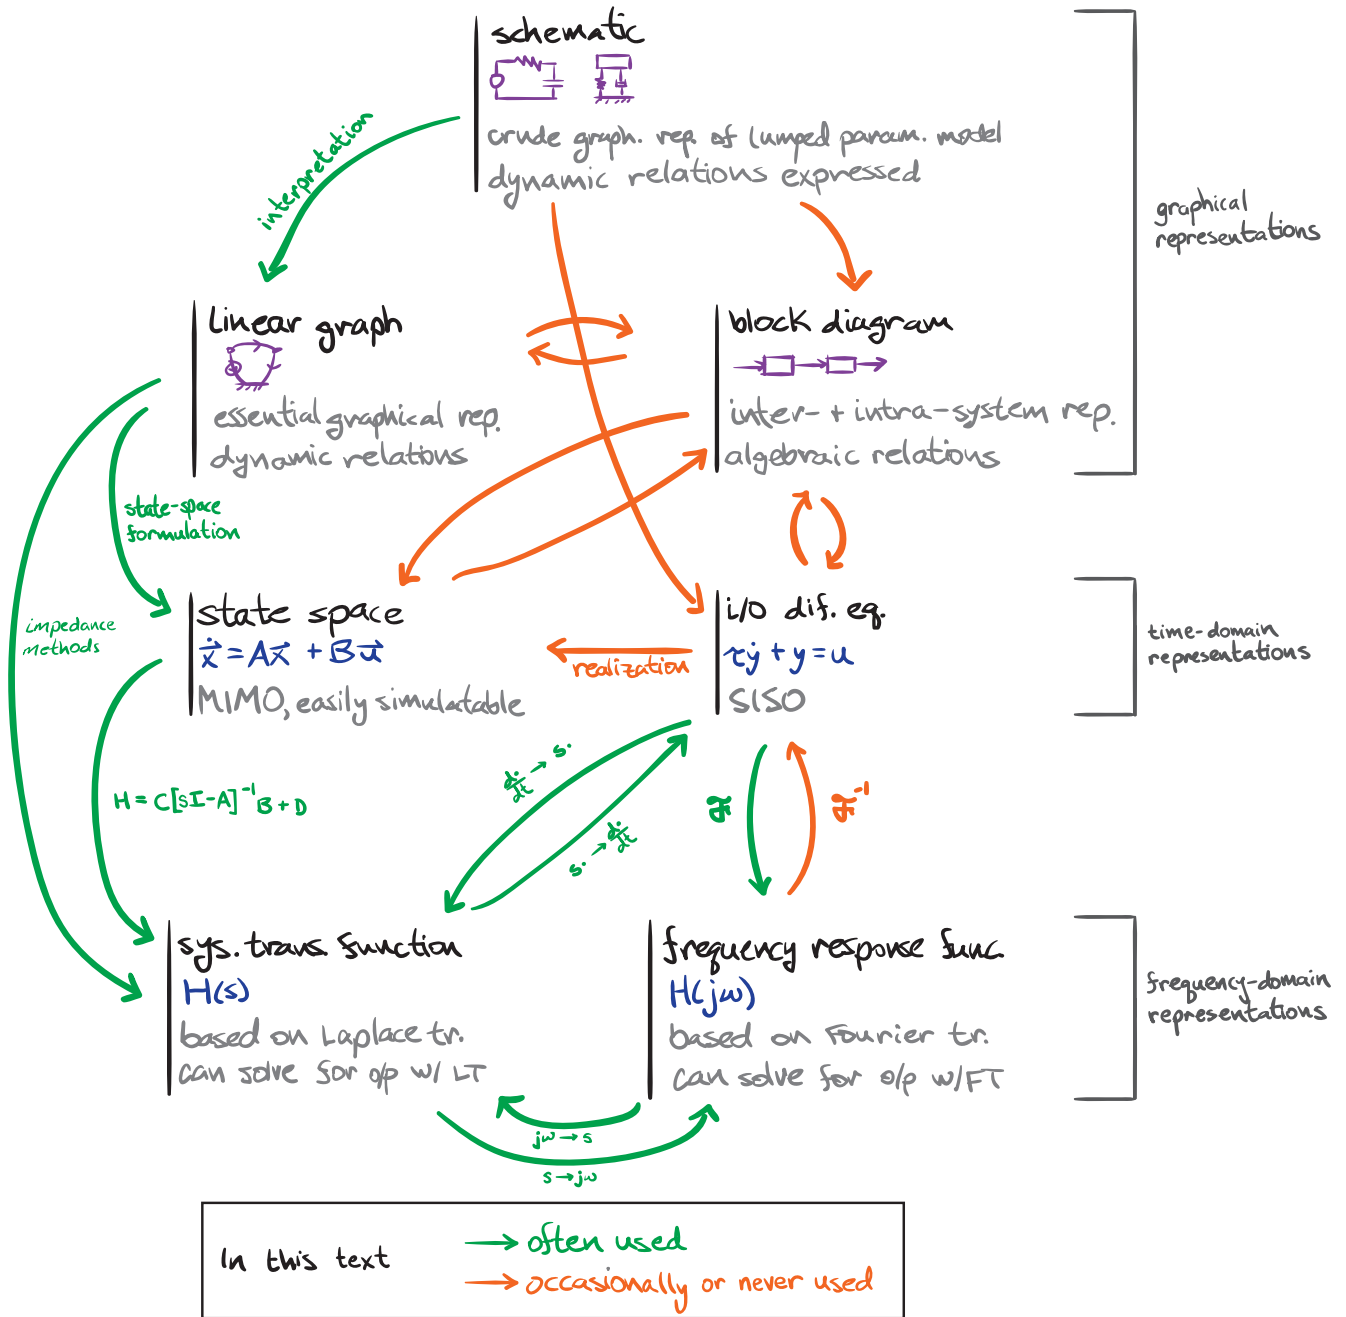 schematic
crude graph. rep. of lumped param. model
dynamic relations expressed
interpretation
graphical
representations
linear graph
essential graphical rep.
dynamic relations
block diagram
inter- + intra-system rep.
algebraic relations
state-space
formulation
impedance
methods
state space
ẋ⃗ = Ax⃗ + Bu⃗
MIMO, easily simulatable
realization
i/o dif. eq.
τẏ + y = u
SISO
time-domain
representations
H = C[sI-A]⁻¹B + D
d·/dt → s·
s· → d·/dt
ℱ
ℱ⁻¹
sys. trans. function
H(s)
based on Laplace tr.
can solve for o/p w/ LT
frequency response func.
H(jω)
based on Fourier tr.
can solve for o/p w/FT
frequency-domain
representations
jω → s
s → jω
In this text
→ often used
→ occasionally or never used